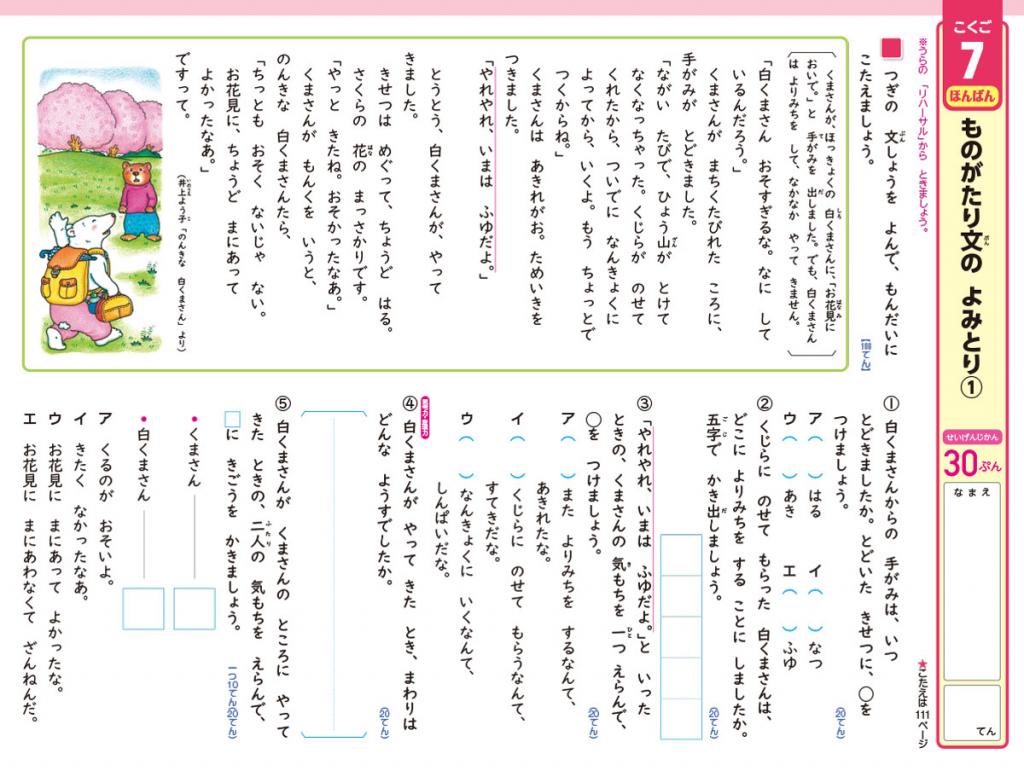 こくご
7
ほんばん
ものがたり文の よみとり①
ぶん
せいげんじかん
30ぷん
なまえ
てん
※うらの「リハーサル」から ときましょう。
★こたえは111ページ
つぎの 文しょうを よんで、もんだいに
ぶん
こたえましょう。
【100てん】
くまさんが、ほっきょくの 白くまさんに、「お花見に
しろ
はなみ
おいで。」と 手がみを 出しました。でも、白くまさん
て
だ
は よりみちを して、なかなか やって きません。
「白くまさん おそすぎるな。なに して
いるんだろう。」
くまさんが まちくたびれた ころに、
手がみが とどきました。
「ながい たびで、ひょう山が とけて
ざん
なくなっちゃった。くじらが のせて
くれたから、ついでに なんきょくに
よってから、いくよ。もう ちょっとで
つくからね。」
くまさんは あきれがお。ためいきを
つきました。
「やれやれ、いまは ふゆだよ。」
とうとう、白くまさんが、やって
きました。
きせつは めぐって、ちょうど はる。
さくらの 花の まっさかりです。
はな
「やっと きたね。おそかったなあ。」
くまさんが もんくを いうと、
のんきな 白くまさんたら、
「ちっとも おそく ないじゃ ない。
お花見に、ちょうど まにあって
よかったなあ。」
ですって。
(井上よう子「のんきな 白くまさん」より)
いのうえ
こ
① 白くまさんからの 手がみは、いつ
とどきましたか。とどいた きせつに、○を
つけましょう。
(20てん)
ア( )はる イ( )なつ
ウ( )あき エ( )ふゆ
② くじらに のせて もらった 白くまさんは、
どこに よりみちを する ことに しましたか。
五字で かき出しましょう。
ごじ
だ
(20てん)
③ 「やれやれ、いまは ふゆだよ。」と いった
ときの、くまさんの 気もちを 一つ えらんで、
き
ひと
○を つけましょう。
(20てん)
ア( )また よりみちを するなんて、
あきれたな。
イ( )くじらに のせて もらうなんて、
すてきだな。
ウ( )なんきょくに いくなんて、
しんぱいだな。
④ 白くまさんが やって きた とき、まわりは
どんな ようすでしたか。
(20てん)
⑤ 白くまさんが くまさんの ところに やって
きた ときの、二人の 気もちを えらんで、
ふたり
□に きごうを かきましょう。
一つ10てん(20てん)
●くまさん
●白くまさん
ア くるのが おそいよ。
イ きたく なかったなあ。
ウ お花見に まにあって よかったな。
エ お花見に まにあわなくて ざんねんだ。